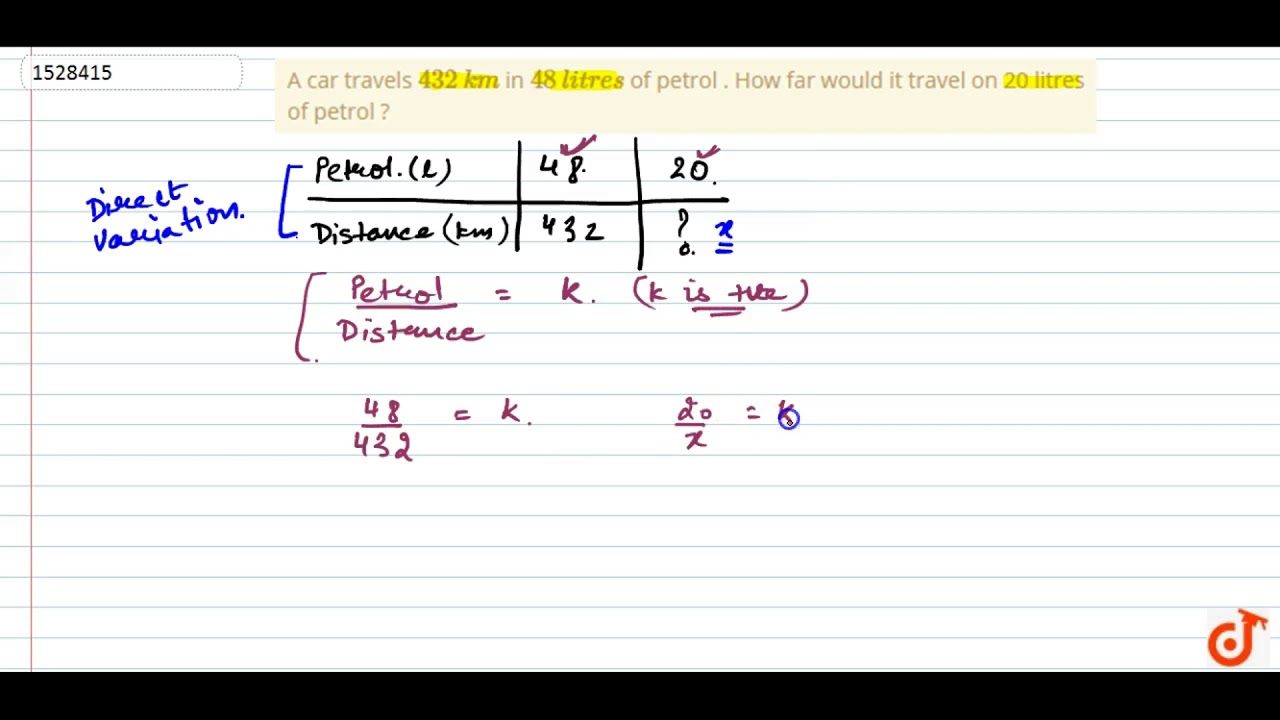 1528415
A car travels 432 km in 48 litres of petrol . How far would it travel on 20 litres
of petrol ?
Petrol. (l) 48. 20.
Direct
variation.
Distance (km) 432 ? x
Petrol = k. (k is +ve)
Distance
48 = k. 20 = k
432 x